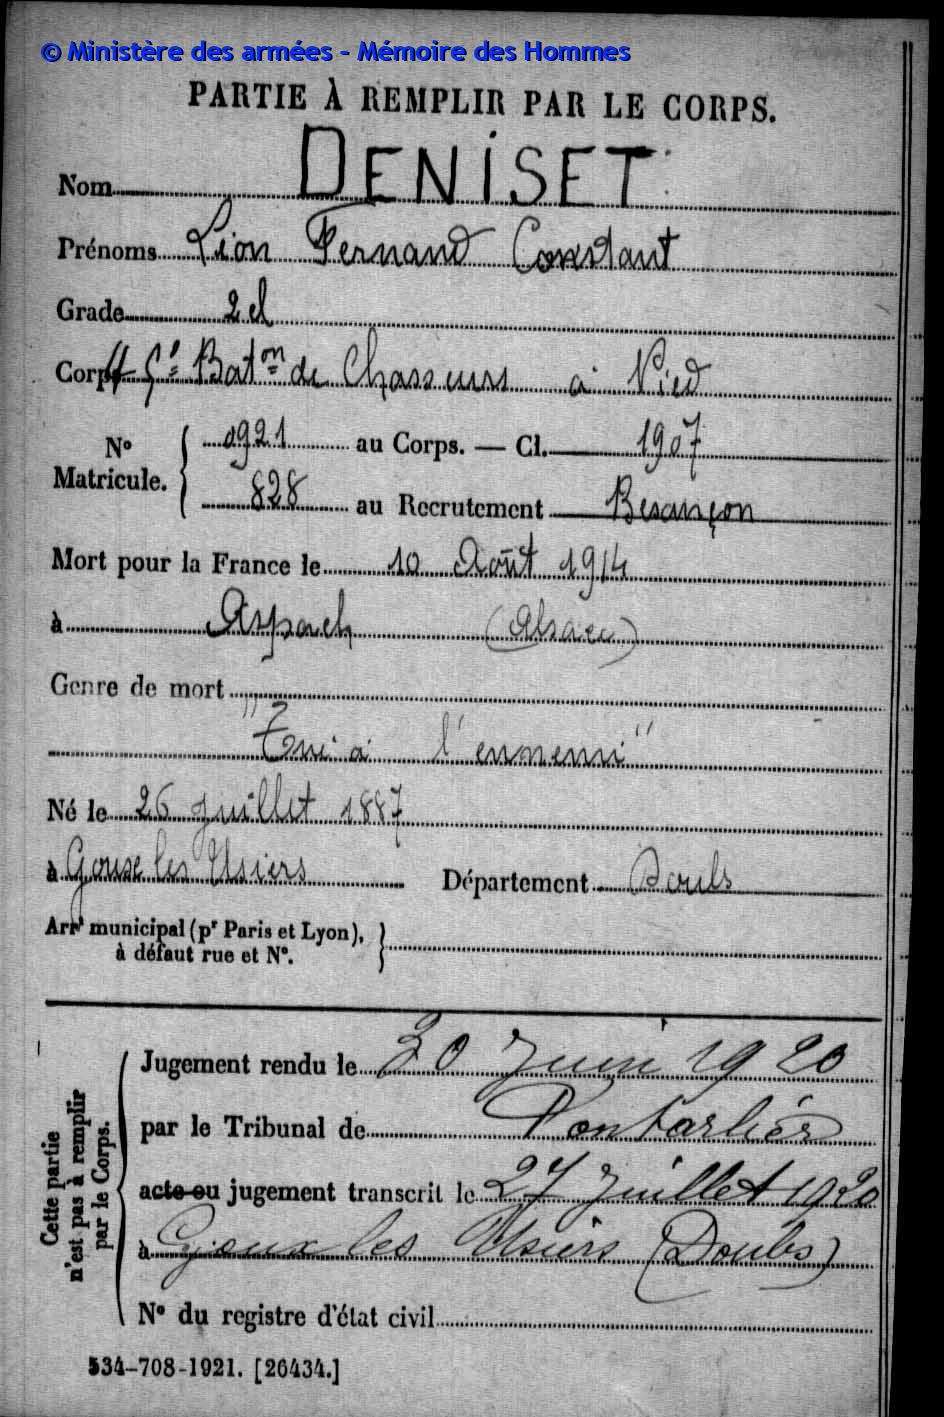 © Ministère des armées - Mémoire des Hommes
PARTIE À REMPLIR PAR LE CORPS.
Nom DENISET
Prénoms Léon Fernand Constant
Grade 2 cl
Corps 45e Baton de Chasseurs à Pied
N° Matricule. { 0921 au Corps. — Cl. 1907
828 au Recrutement Besançon
Mort pour la France le 10 Août 1914
à Aspach (Alsace)
Genre de mort
"Tué à l'ennemi"
Né le 26 Juillet 1887
à Goux les Usiers Département Doubs
Arrt municipal (pr Paris et Lyon),
à défaut rue et N°.
Cette partie n'est pas à remplir par le Corps.
Jugement rendu le 30 Juin 1920
par le Tribunal de Pontarlier
acte ou jugement transcrit le 27 Juillet 1920
à Goux les Usiers (Doubs)
N° du registre d'état civil
534-708-1921. [26434.]